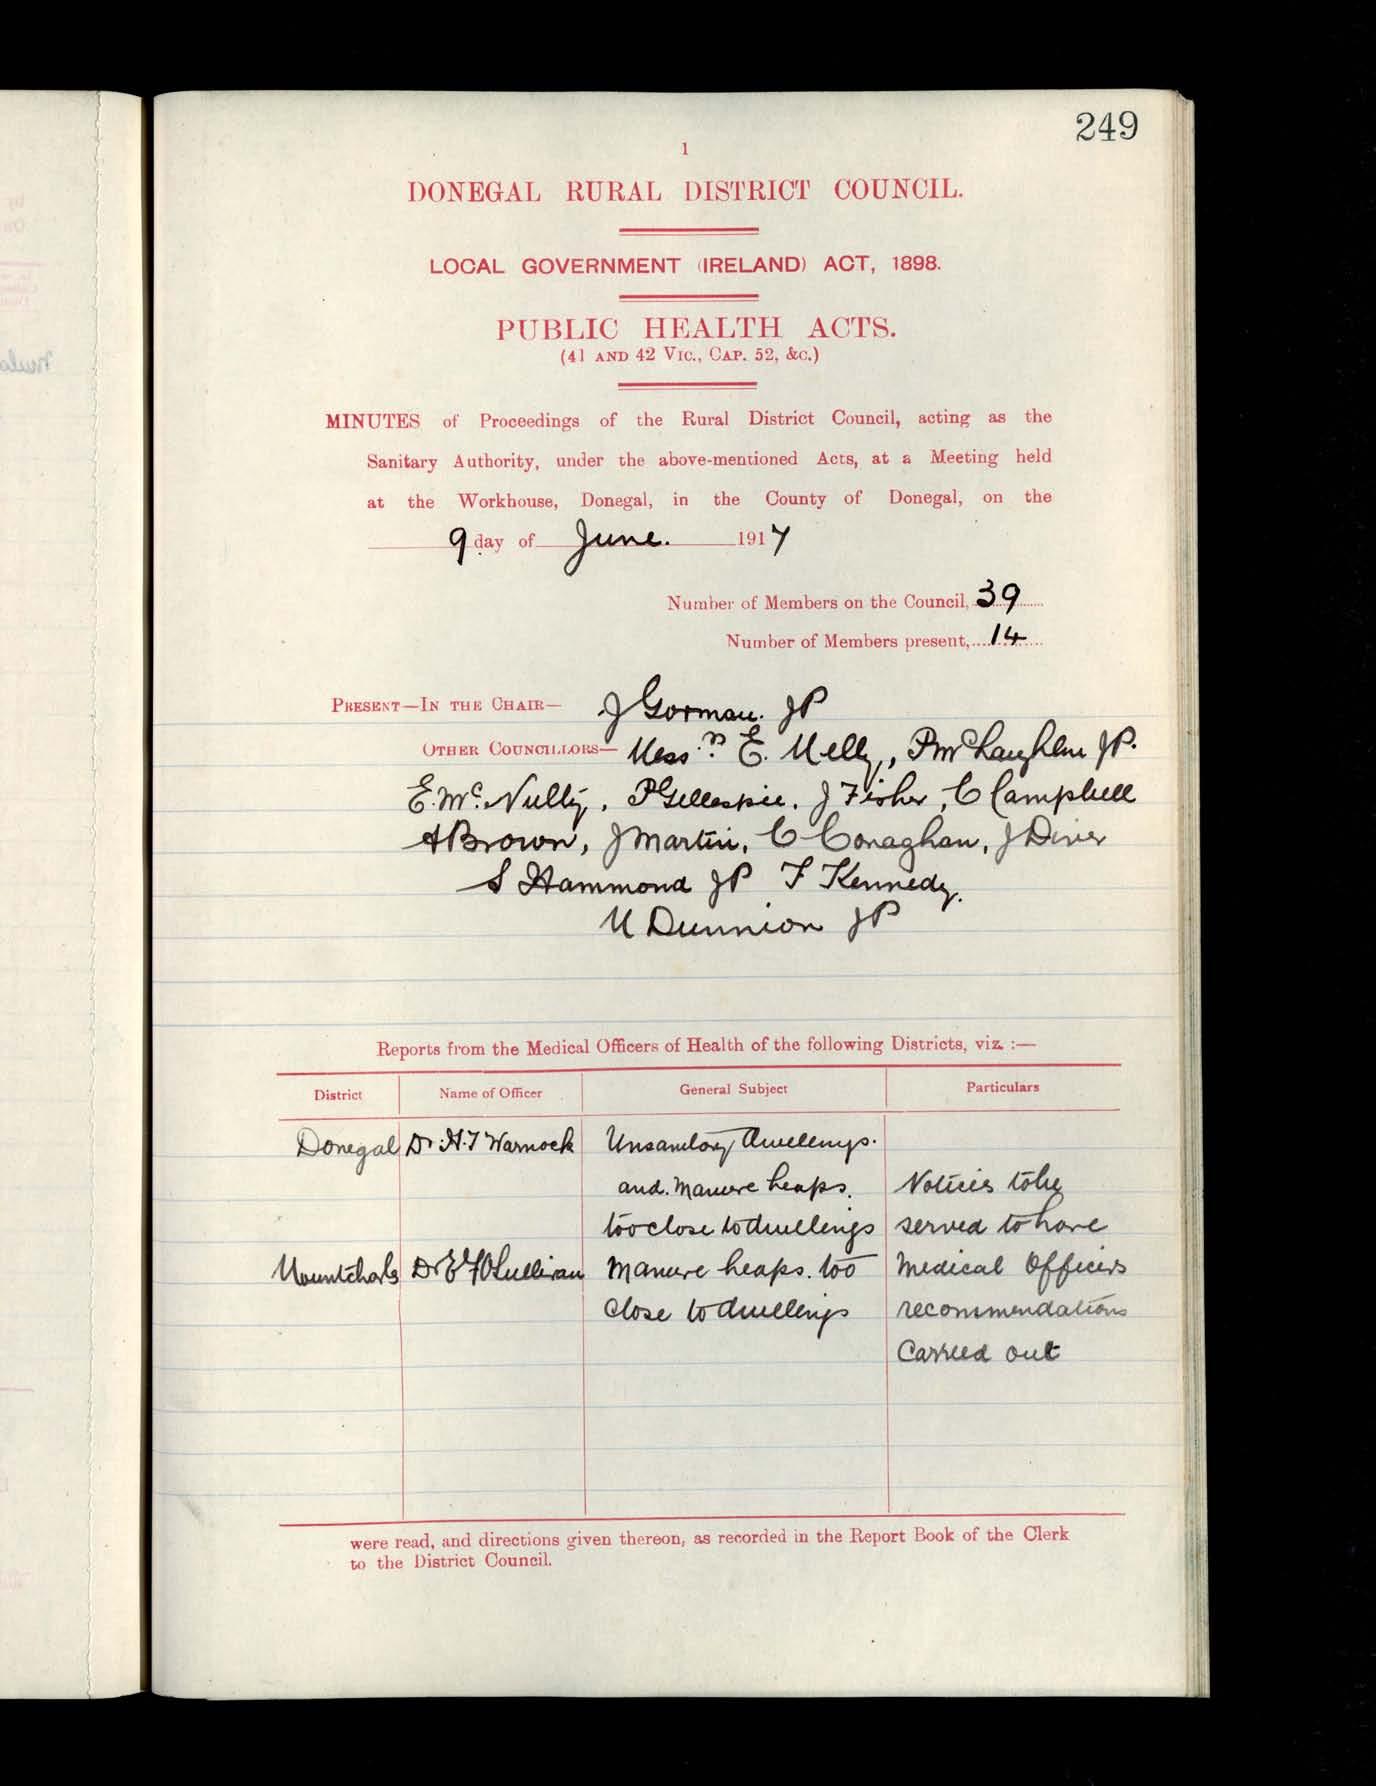 249
1
DONEGAL RURAL DISTRICT COUNCIL.
LOCAL GOVERNMENT (IRELAND) ACT, 1898.
PUBLIC HEALTH ACTS.
(41 AND 42 VIC., CAP. 52, &C.)
MINUTES of Proceedings of the Rural District Council, acting as the
Sanitary Authority, under the above-mentioned Acts, at a Meeting held
at the Workhouse, Donegal, in the County of Donegal, on the
9 day of June. 1917
Number of Members on the Council, 39
Number of Members present, 14
PRESENT—IN THE CHAIR— J Gorman. JP
OTHER COUNCILLORS— Messrs E. Melly, P McLaughlin JP.
E. Mc. Nulty, P Gillespie, J Fisher, C Campbell
A Brown, J Martin, C Conaghan, J Diver
S Hammond JP F Kennedy.
M Dunnion JP
Reports from the Medical Officers of Health of the following Districts, viz. :—
District Name of Officer General Subject Particulars
Donegal Dr. H.T Warnock Unsanitary dwellings.
and manure heaps. Notices to be
too close to dwellings served to have
Mountcharles Dr E F O'Sullivan Manure heaps. too Medical Officers
close to dwellings recommendations
Carried out
were read, and directions given thereon, as recorded in the Report Book of the Clerk
to the District Council.